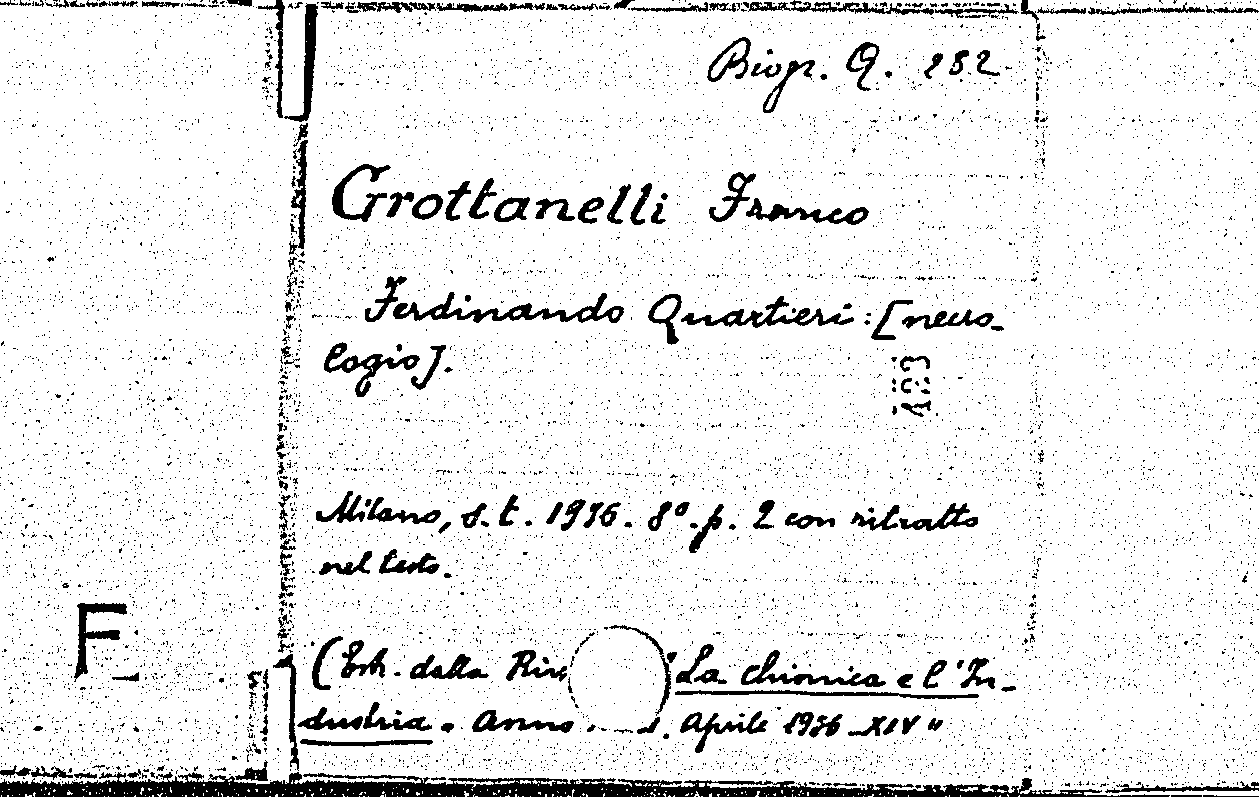 Biogr. Q. 232
Grottanelli Franco
Ferdinando Quartieri: [necro-
logio].
123
Milano, s.t. 1936. 8º. p. 2 con ritratto
nel testo.
F
(Estr. dalla Riv "La chimica e l'In-
dustria. Anno Aprile 1936 XIV"